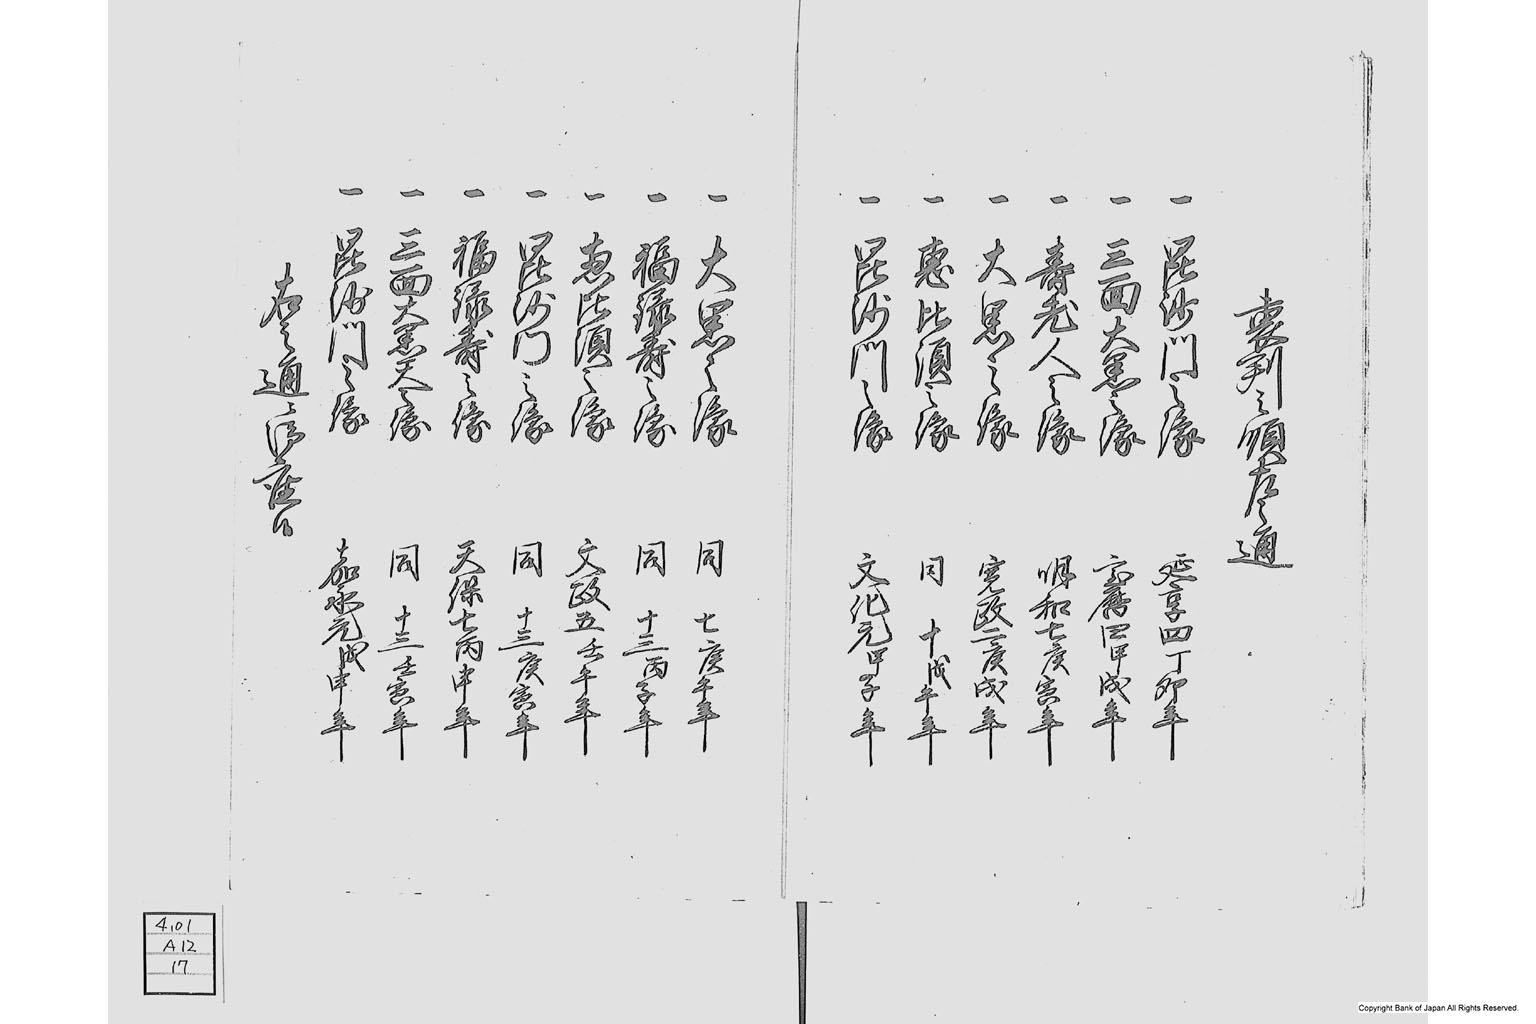 裏判之順左之通
一 毘沙門之像 延享四丁卯年
一 三面大黒之像 宝暦四甲戌年
一 壽老人之像 明和七庚寅年
一 大黒之像 寛政二庚戌年
一 恵比須之像 同 十戊午年
一 毘沙門之像 文化元甲子年
一 大黒之像 同 七庚午年
一 福禄壽之像 同 十三丙子年
一 恵比須之像 文政五壬午年
一 毘沙門之像 同 十三庚寅年
一 福禄壽之像 天保七丙申年
一 三面大黒天之像 同 十三壬寅年
一 毘沙門之像 嘉永元戊申年
右之通ニ御座候
4,01
A12
17
Copyright Bank of Japan All Rights Reserved.